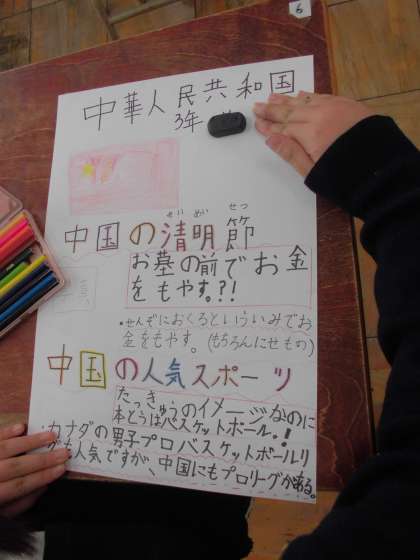 6
中華人民共和国
3年
せい めい せつ
中国の清明節
お墓の前でお金
をもやす。?!
・せんぞにおくるといういみでお
金をもやす。(もちろんにせもの)
中国の人気スポーツ
たっきゅうのイメージなのに
本とうはバスケットボール!
カナダの男子プロバスケットボールリ
グも人気ですが、中国にもプロリーグがある。